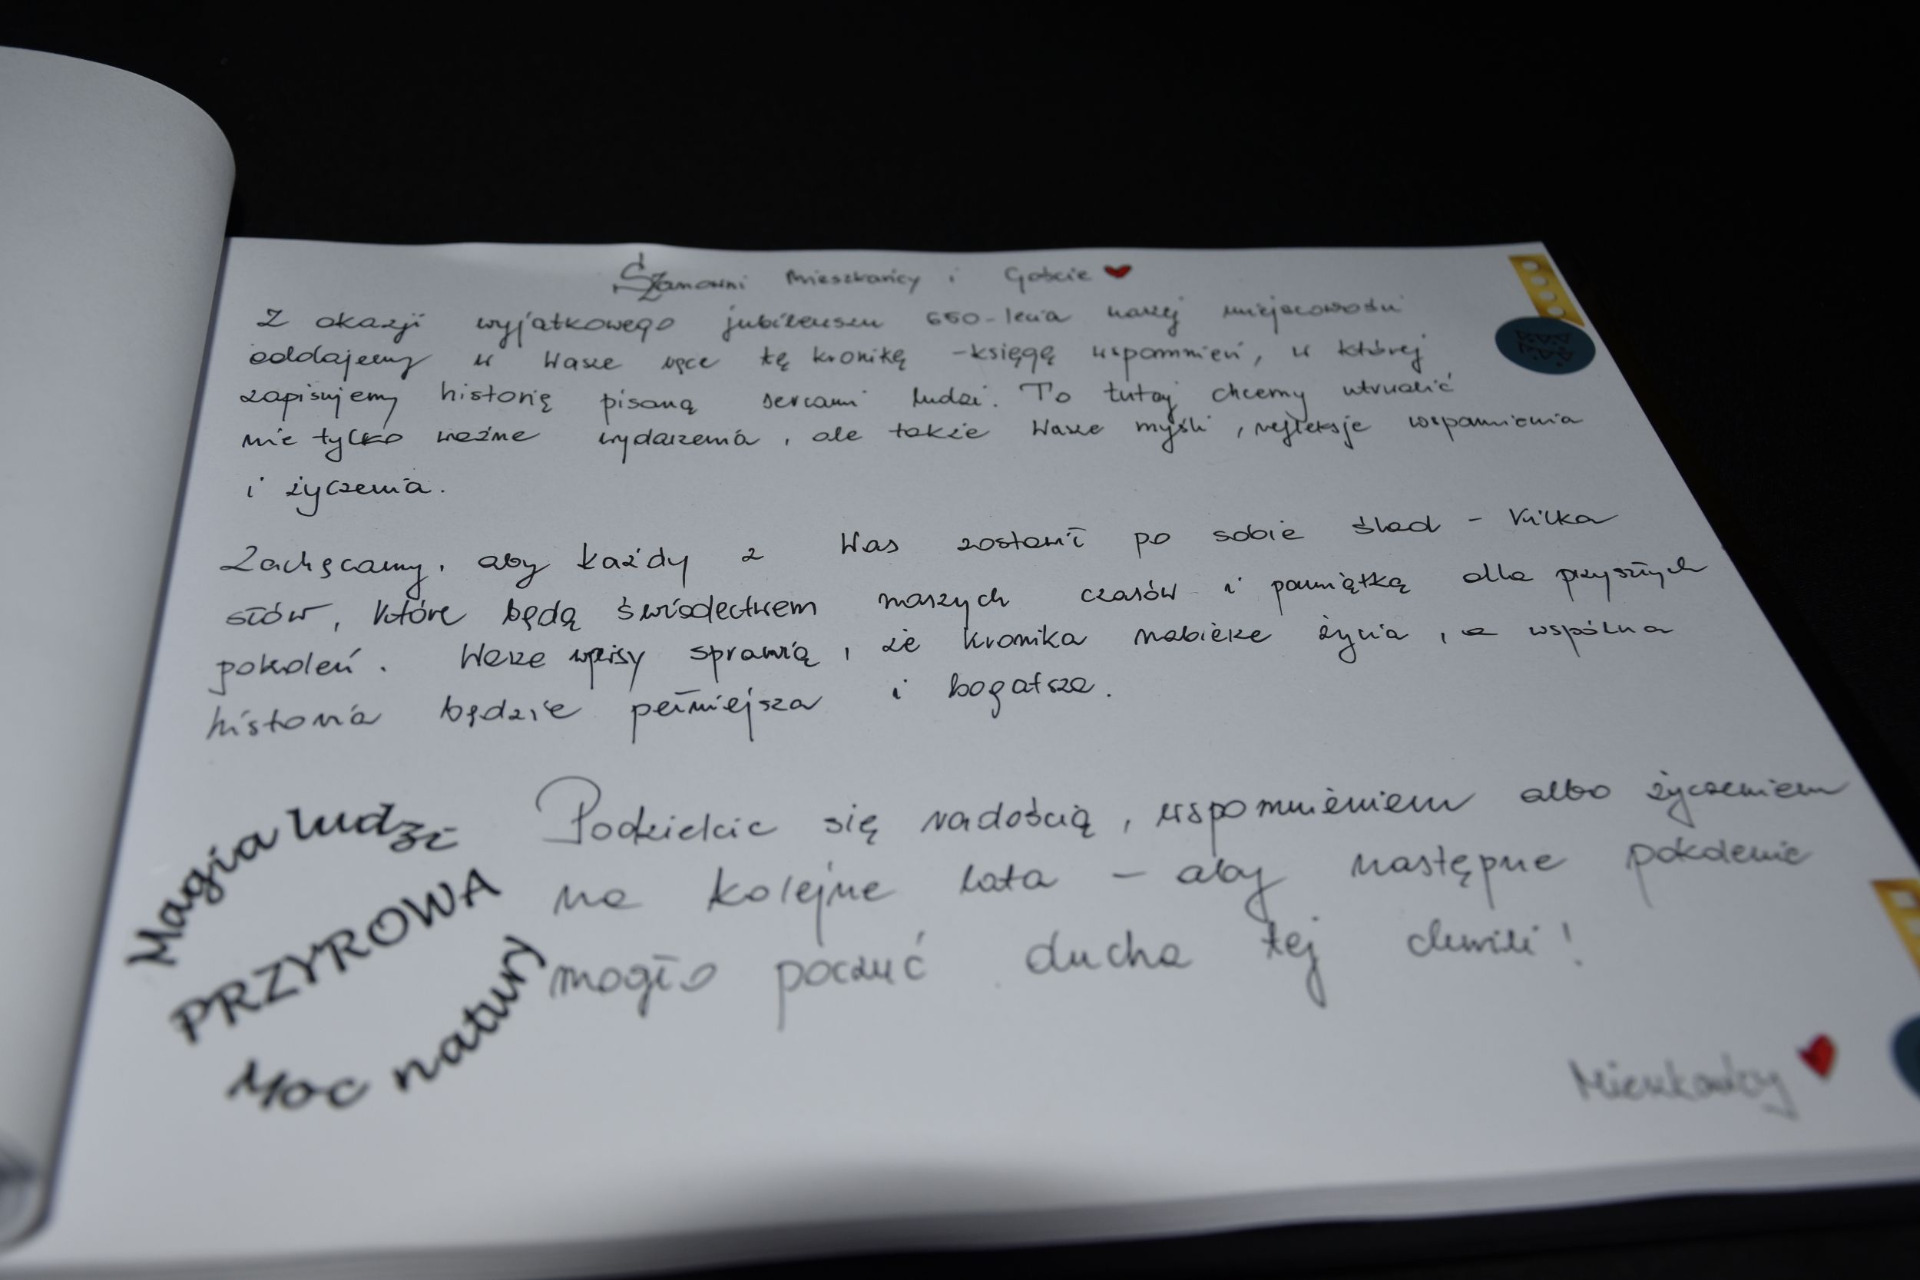 Szanowni Mieszkańcy i Goście
Z okazji wyjątkowego jubileuszu 650-lecia naszej miejscowości
oddajemy w Wasze ręce tę kronikę - księgę wspomnień, w której
zapisujemy historię pisaną sercami ludzi. To tutaj chcemy utrwalić
nie tylko ważne wydarzenia, ale także Wasze myśli, refleksje wspomnienia
i życzenia.
Zachęcamy, aby każdy z Was zostawił po sobie ślad - kilka
słów, które będą świadectwem naszych czasów i pamiątką dla przyszłych
pokoleń. Wasze wpisy sprawią, że kronika nabierze życia, a wspólna
historia będzie pełniejsza i bogatsza.
Podzielcie się radością, wspomnieniem albo życzeniem
na kolejne lata - aby następne pokolenie
mogło poczuć ducha tej chwili!
Magia ludzi
PRZYROWA
Moc natury
Mieszkańcy